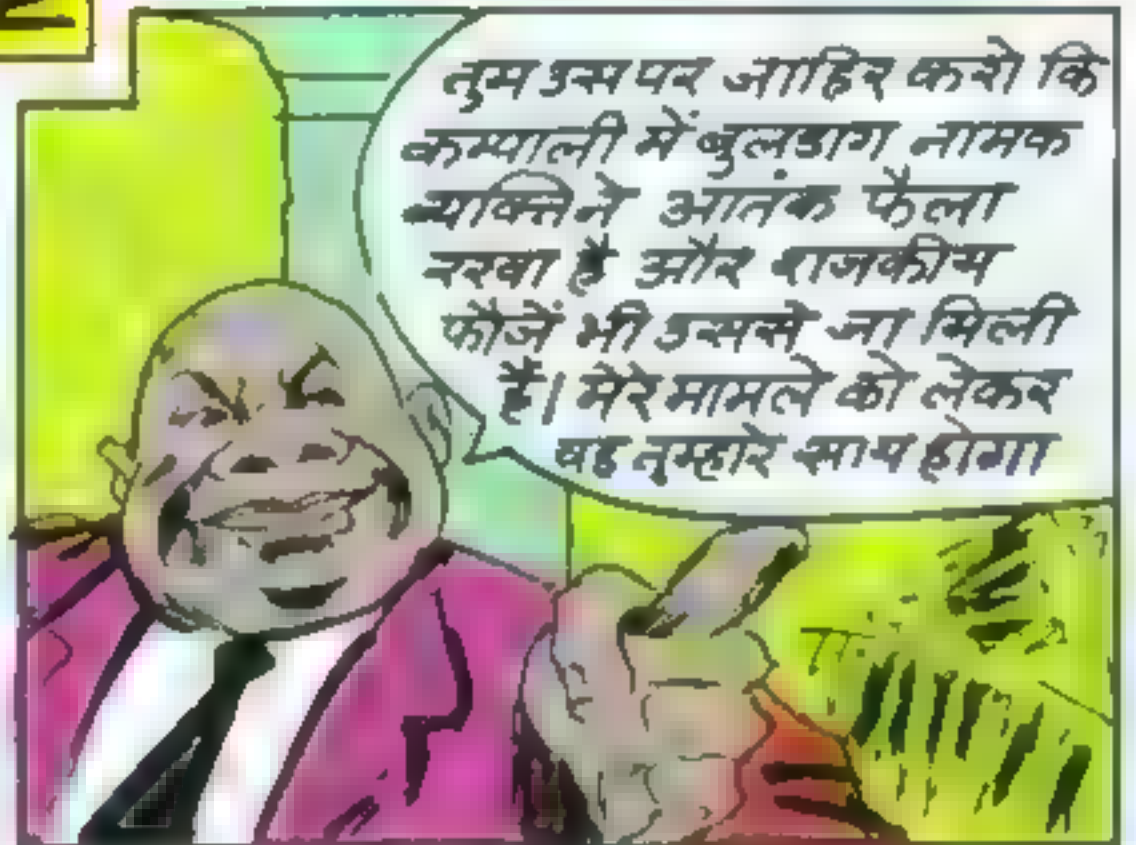 तुम उस पर जाहिर करो कि
कम्पाली में बुलडाग नामक
व्यक्ति ने आतंक फैला
रखा है और राजकीय
फौजें भी उससे जा मिली
है। मेरे मामले को लेकर
वह तुम्हारे साथ होगा